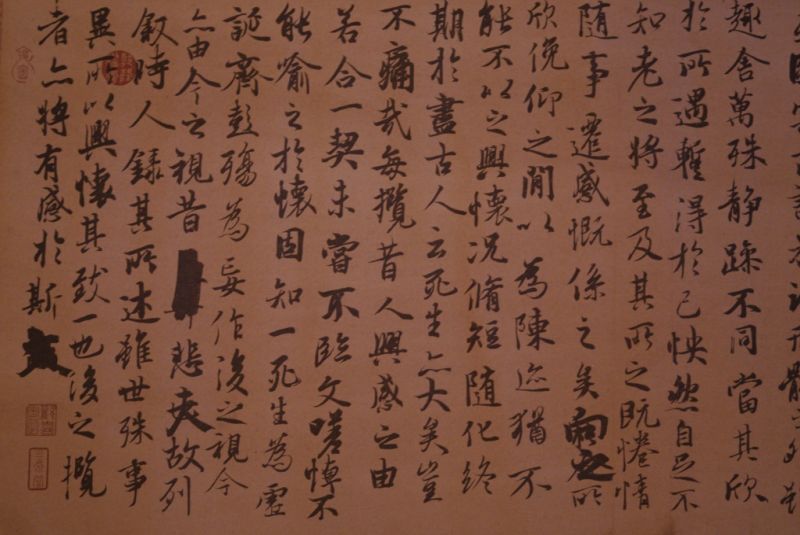 形骸之外雖
趣舍萬殊靜躁不同當其欣
於所遇蹔得於己怏然自足不
知老之將至及其所之既惓情
隨事遷感慨係之矣向之所
欣俛仰之閒以為陳迹猶不
能不以之興懷況脩短隨化終
期於盡古人云死生亦大矣豈
不痛哉每攬昔人興感之由
若合一契未嘗不臨文嗟悼不
能喻之於懷固知一死生為虛
誕齊彭殤為妄作後之視今
亦由今之視昔悲夫故列
敘時人錄其所述雖世殊事
異所以興懷其致一也後之攬
者亦將有感於斯文